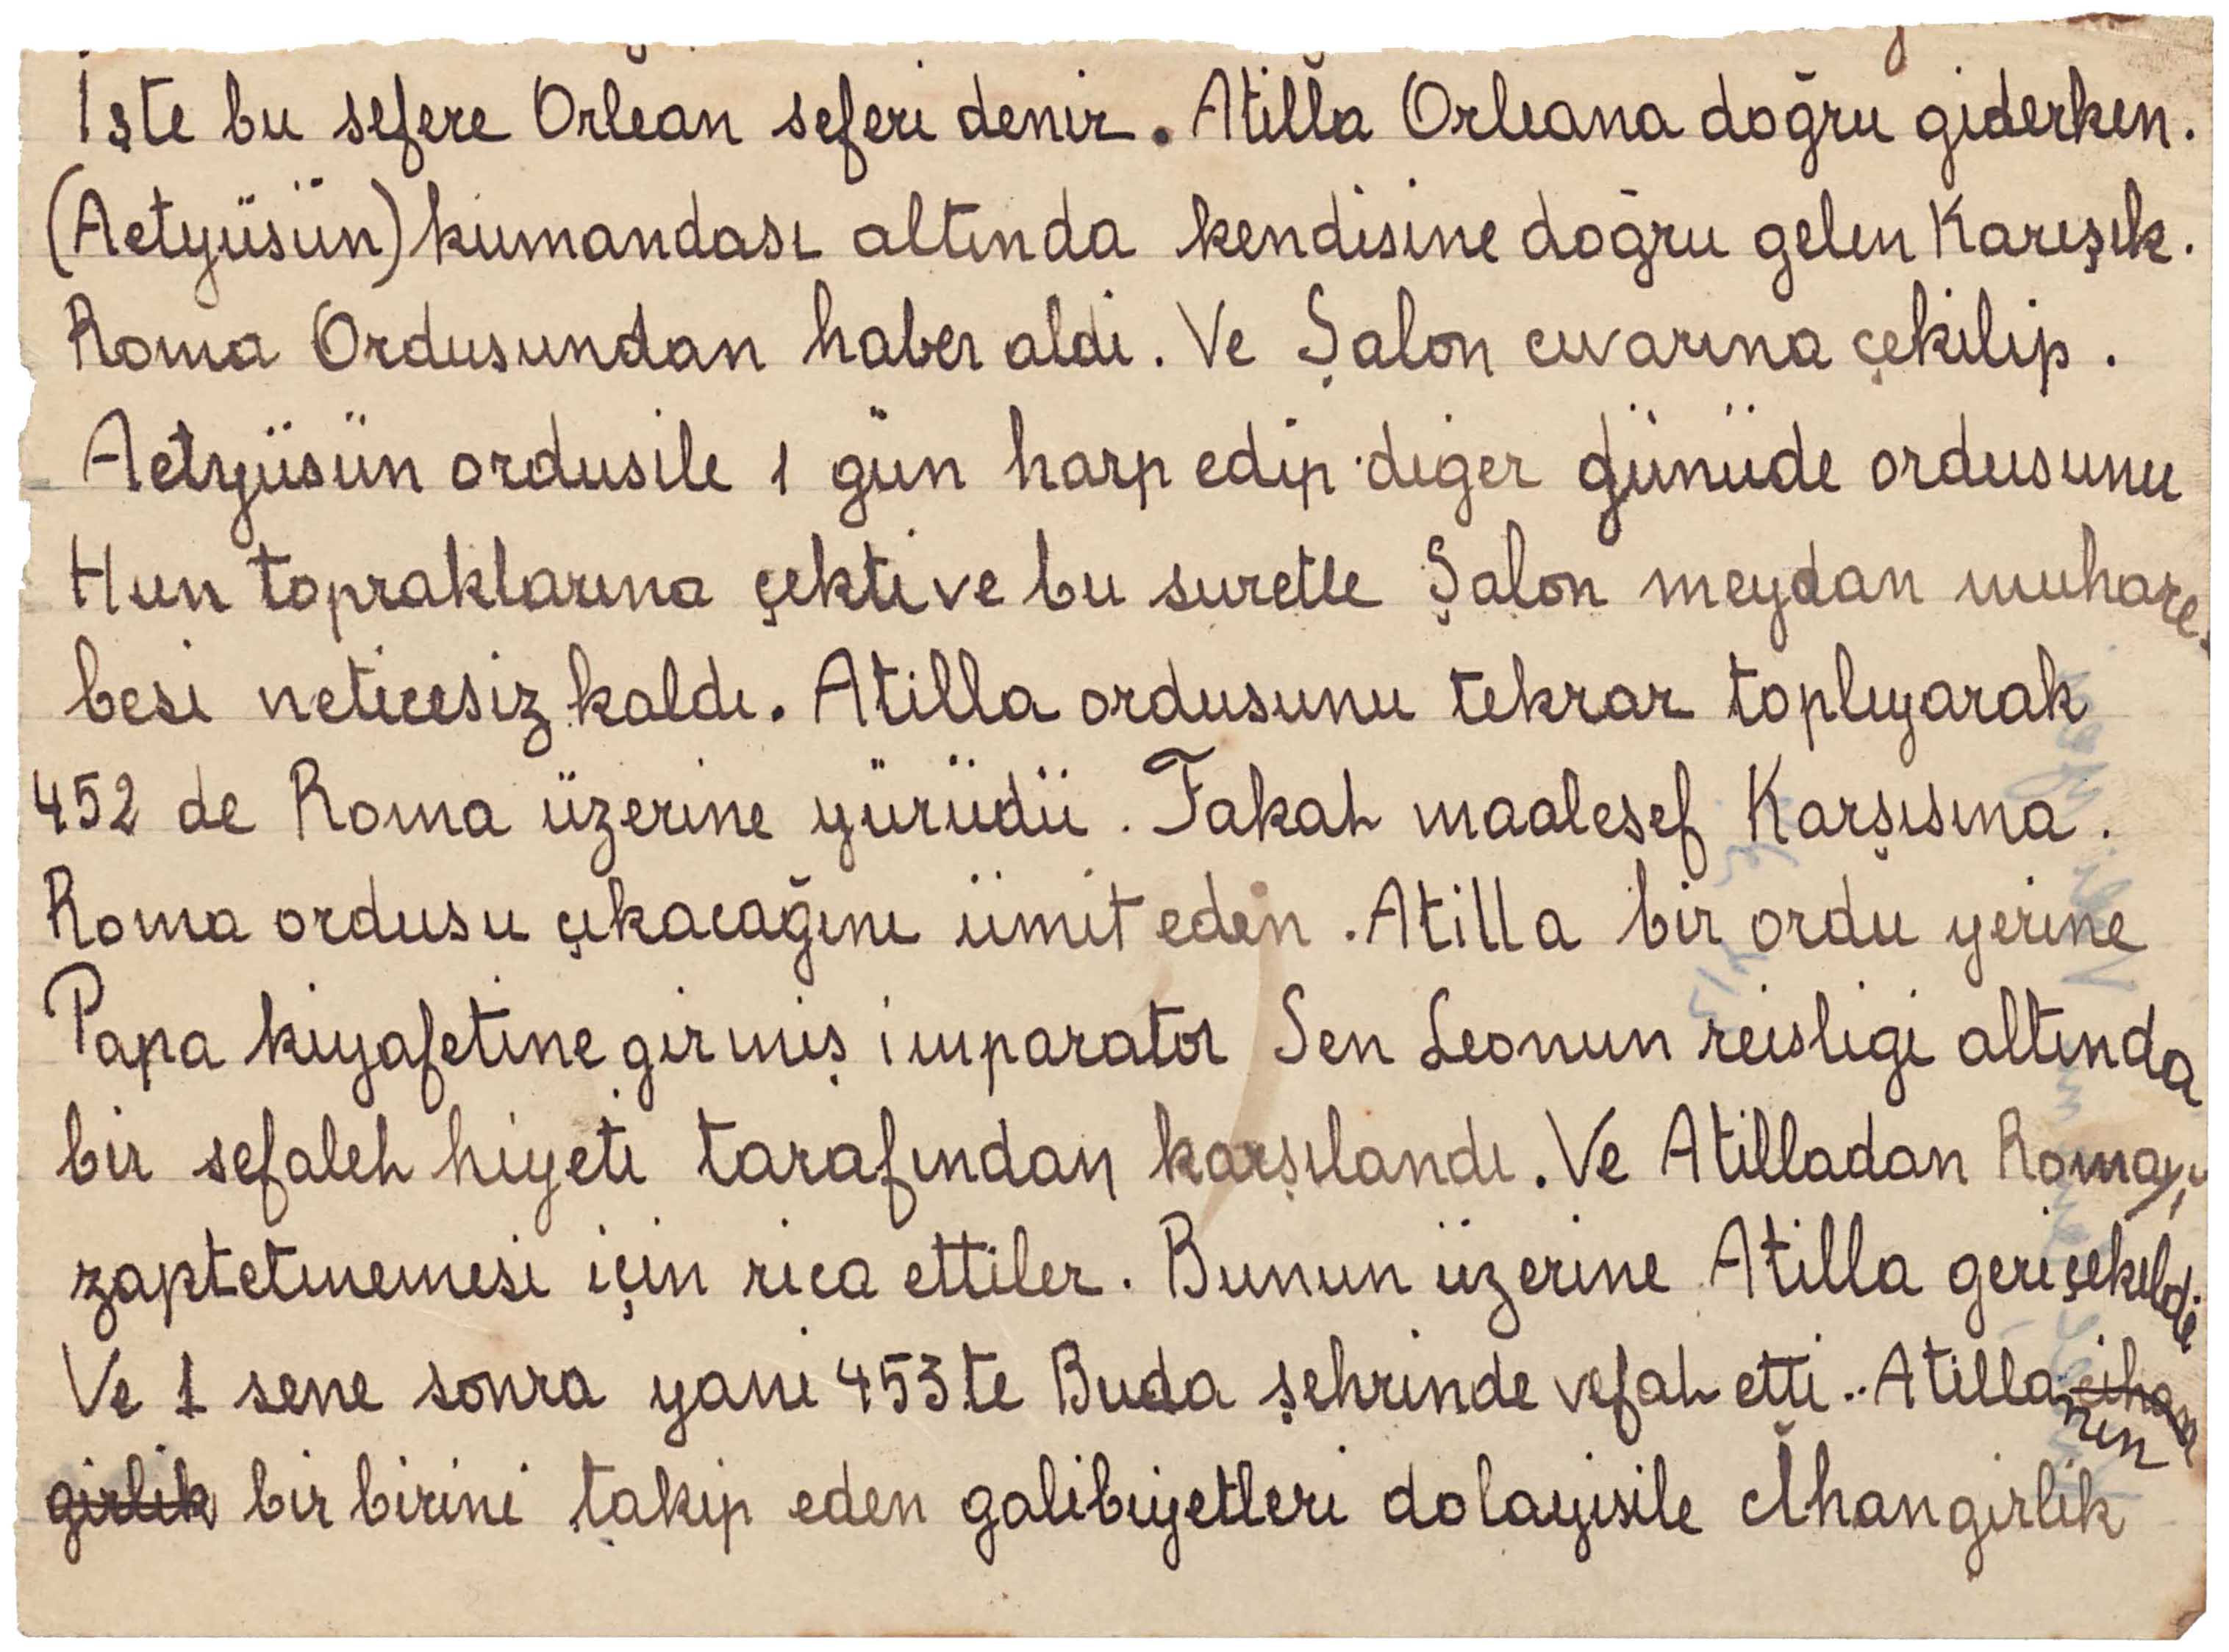 İşte bu sefere Orlean seferi denir. Atilla Orleana doğru giderken.
(Aetyüsün) kumandası altında kendisine doğru gelen Karışık.
Roma Ordusundan haber aldı. Ve Şalon cıvarına çekilip.
Aetyüsün ordusile 1 gün harp edip diğer günüde ordusunu
Hun topraklarına çekti ve bu suretle Şalon meydan muhare-
besi neticesiz kaldı. Atilla ordusunu tekrar toplıyarak
452 de Roma üzerine yürüdü. Fakat maalesef Karşısına.
Roma ordusu çıkacağını ümit eden. Atilla bir ordu yerine
Papa kiyafetine girmiş imparator Sen Leonun reisligi altında
bir sefaleh hiyeti tarafından karşılandı. Ve Atilladan Romayı
zaptetmemesi için rica ettiler. Bunun üzerine Atilla geri çekildi
Ve 1 sene sonra yani 453 te Buda şehrinde vefat etti.. Atillanın cihan
girlik bir birini takip eden galibiyetleri dolayisile Cihangirlik